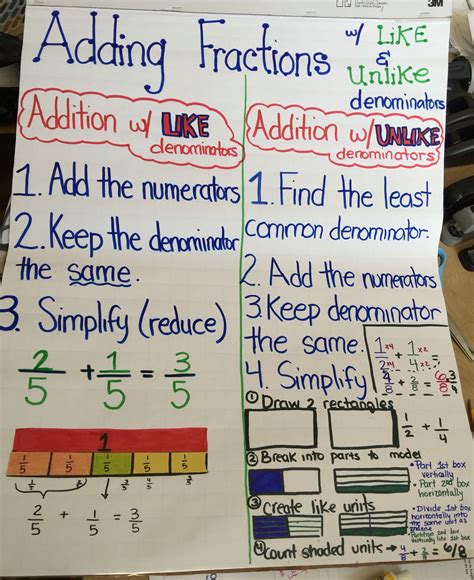 3M
Adding Fractions
w/ LIKE
&
Unlike
denominators
Addition w/ LIKE
denominators
1. Add the numerators
2. Keep the denominator
the same.
3. Simplify (reduce)
2/5 + 1/5 = 3/5
1
1/5 1/5 1/5 1/5 1/5
2/5 + 1/5 = 3/5
Addition w/ UNLIKE
denominators
1. Find the least
common denominator.
2. Add the numerators
3. Keep denominator
the same.
4. Simplify
1/2 x4 x4 + 1/4 x2 x2 =
4/8 + 2/8 = 6/8
① Draw 2 rectangles
1/2 + 1/4
② Break into parts to model
• Part 1st box
vertically
• Part 2nd box
horizontally
③ Create like units
• Divide 1st box
horizontally into
the same unit as
• Partition 2nd box
vertically like 1st box
④ Count shaded units → 4/8 + 2/8 = 6/8